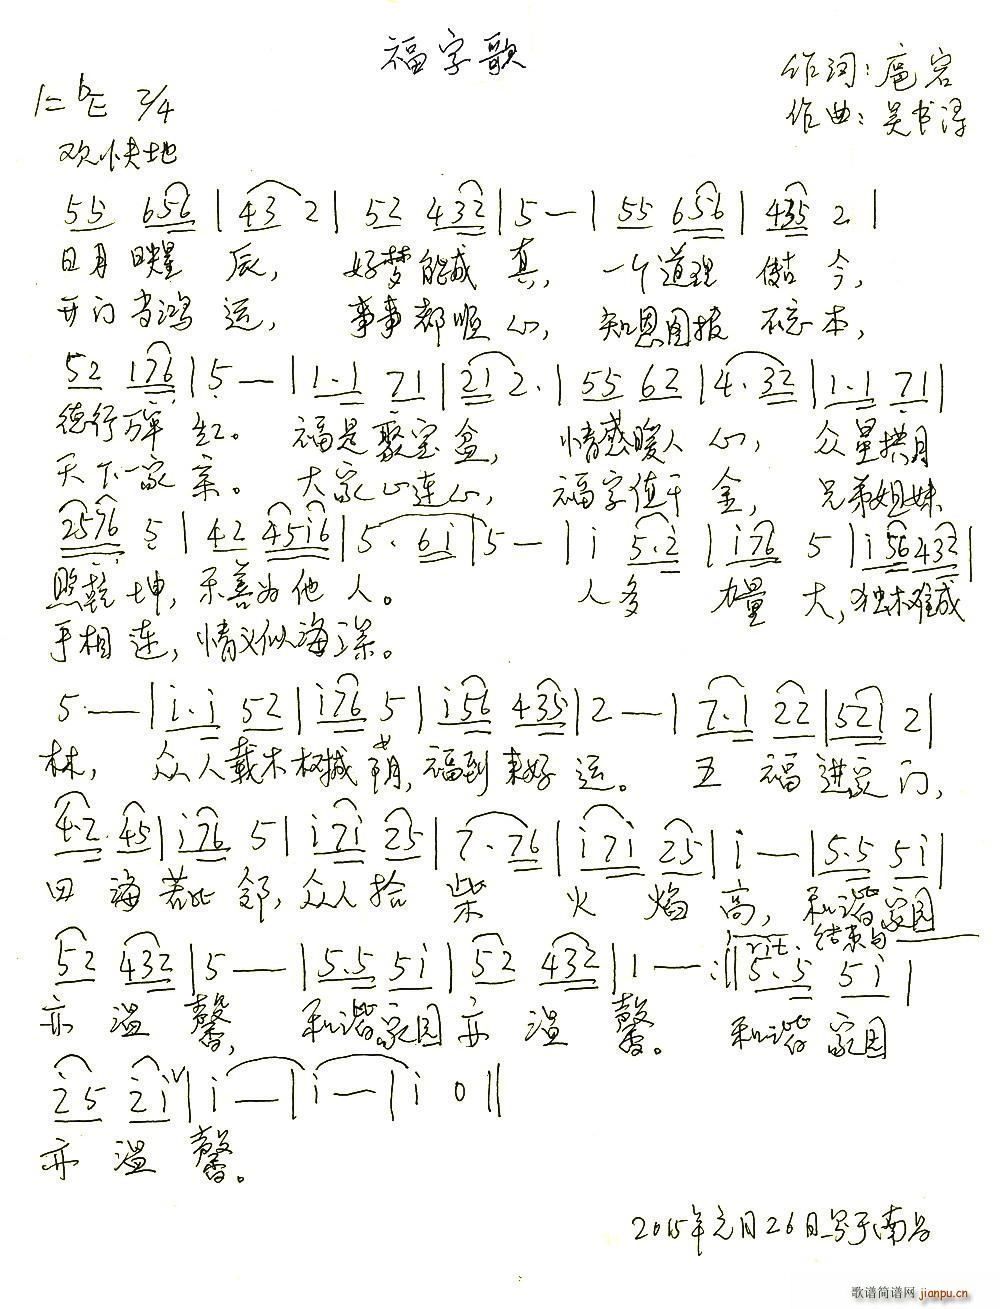 福字歌
1=♭E 2/4
作词:扈容
欢快地
作曲:吴书泽
55 656 | 43 2 | 52 432 | 5 — | 55 656 | 435 2 |
日月映星辰, 好梦能成真, 一个道理传古今,
开门当鸿运, 事事都顺心, 知恩图报不忘本,
52 176 | 5 — | 1·1 71 | 21 2· | 55 62 | 4·32 | 1·1 71 |
德行万年红。 福是聚宝盆, 情感暖人心, 众星拱月
天下一家亲。 大家心连心, 福字值千金, 兄弟姐妹
2576 5 | 42 45i6 | 5· 6i | 5 — | i 5·2 | i76 5 | i56 432 |
照乾坤, 乐善为他人。 人多力量大, 独木难成
手相连, 情义似海深。
5 — | i·i 52 | i76 5 | i56 435 | 2 — | 7·1 22 | 521 2 |
林, 众人栽木树成荫, 福到来好运。 五福进家门,
4·2 45 | i76 5 | i7i 25 | 7·76 | i7i 25 | i — | 5·5 5i |
四海若比邻, 众人拾柴火焰高, 和谐家园
rit. 结束句
52 432 | 5 — | 5·5 5i | 52 432 | 1 — :|| 5·5 5i |
亦温馨, 和谐家园亦温馨。 和谐家园
25 2i | i — | i — | i 0 ||
亦温馨。
2015年元月26日写于南昌
歌谱简谱网 jianpu.cn